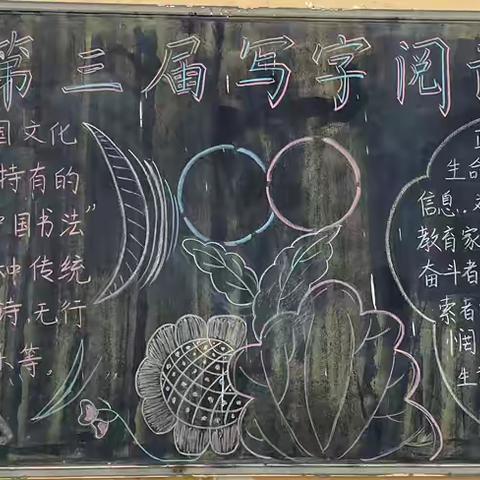 第三届写字阅
国文化
特有的
中国书法”
种传统
诗,无行
等。
正
生命
信息..
教育家
奋斗者
索者
悯
生